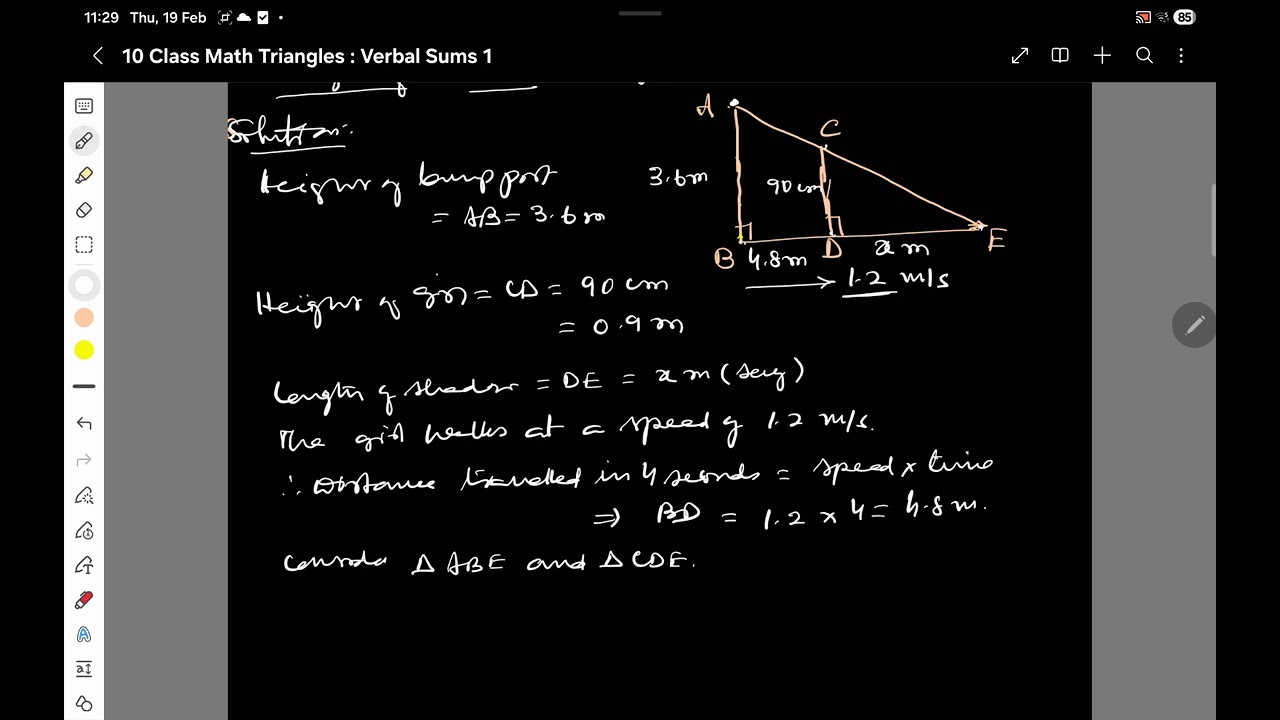 11:29 Thu, 19 Feb
85
10 Class Math Triangles : Verbal Sums 1
Solution:-
Height of lamp post
= AB = 3.6 m
A
C
3.6m
90 cm
B
D
E
4.8m
x m
1.2 m/s
Height of girl = CD = 90 cm
= 0.9 m
Length of shadow = DE = x m (say)
The girl walks at a speed of 1.2 m/s.
∴ Distance travelled in 4 seconds = speed × time
⇒ BD = 1.2 × 4 = 4.8 m.
Consider Δ ABE and Δ CDE.